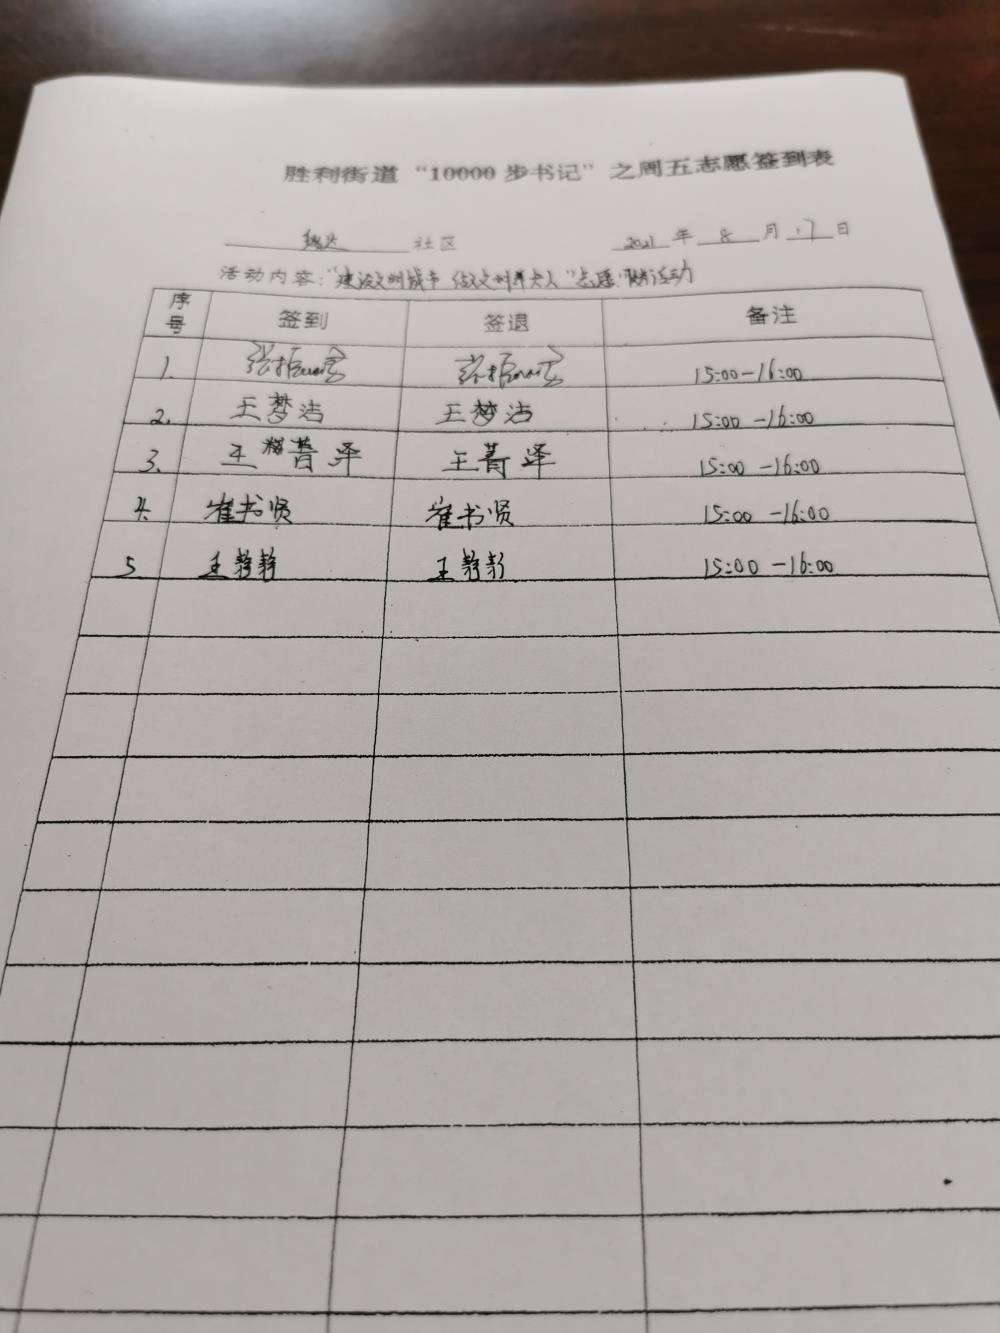 胜利街道“10000步书记”之周五志愿签到表
社区 2021年8月17日
活动内容:“建设文明城市 做文明单大人”志愿服务活动
序号 签到 签退 备注
1. 张振 张振 15:00-16:00
2. 王梦洁 王梦洁 15:00-16:00
3. 王菁泽 王菁泽 15:00-16:00
4. 崔书贤 崔书贤 15:00-16:00
5 王静静 王静静 15:00-16:00